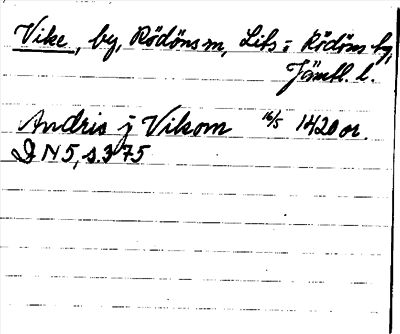 Vike, by, Rödöns sn, Lits o Rödöns tg,
Jämtl. l.
Andris j Vikom 16/5 1420 or.
D N 5, s. 375